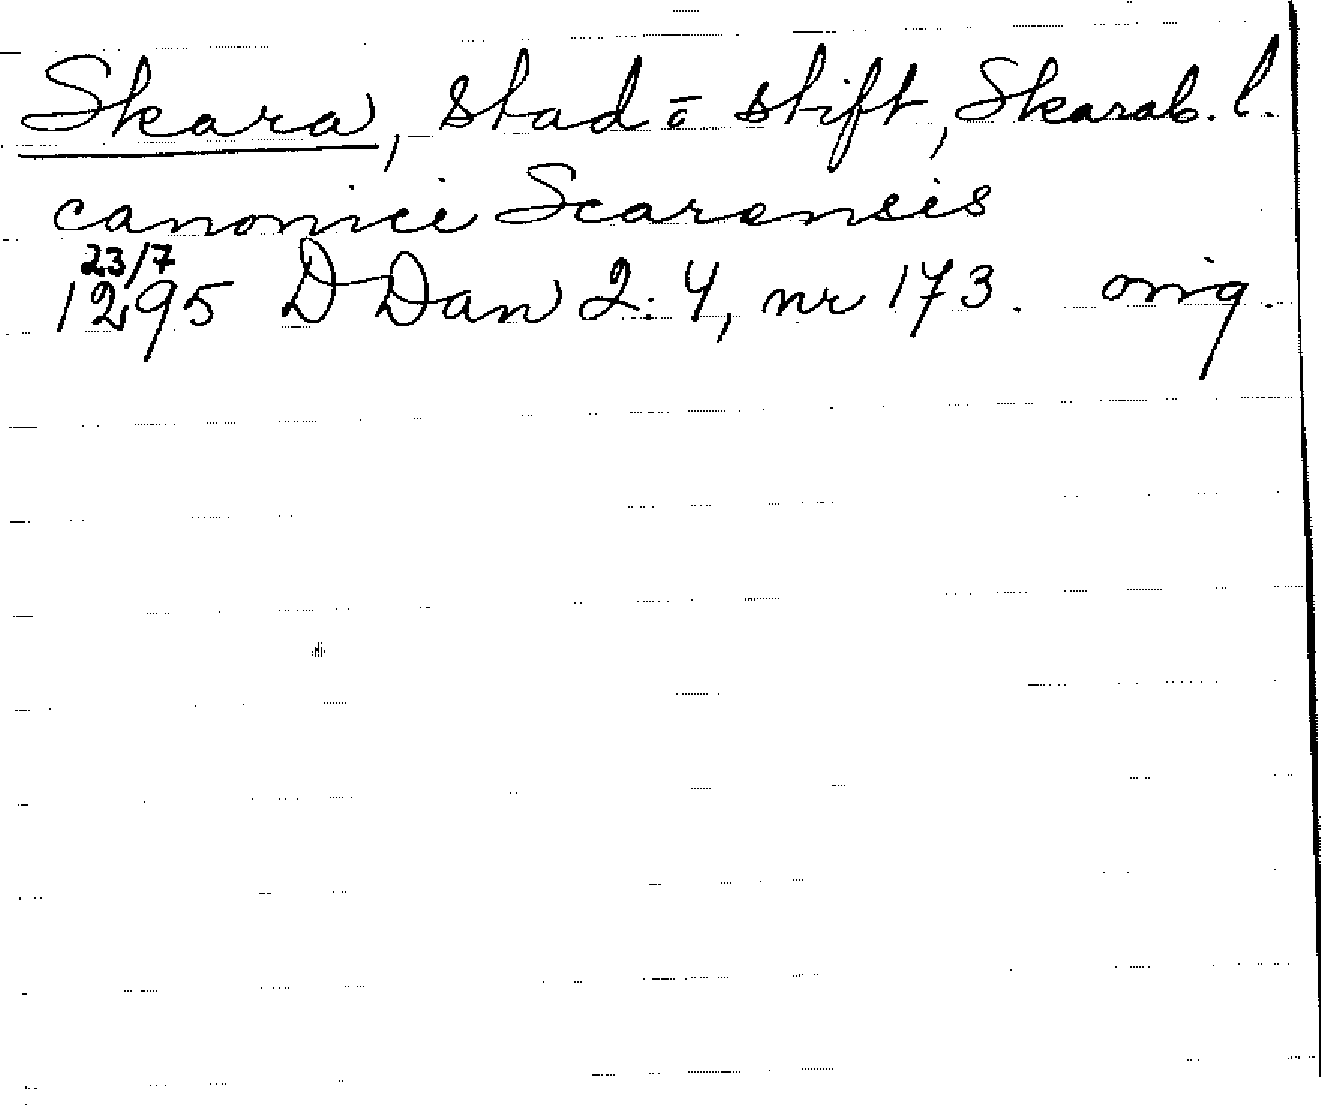 Skara, stad o stift, Skarab. l.
canonici Scarensis
23/7
1295 D Dan 2:4, nr 173. orig.